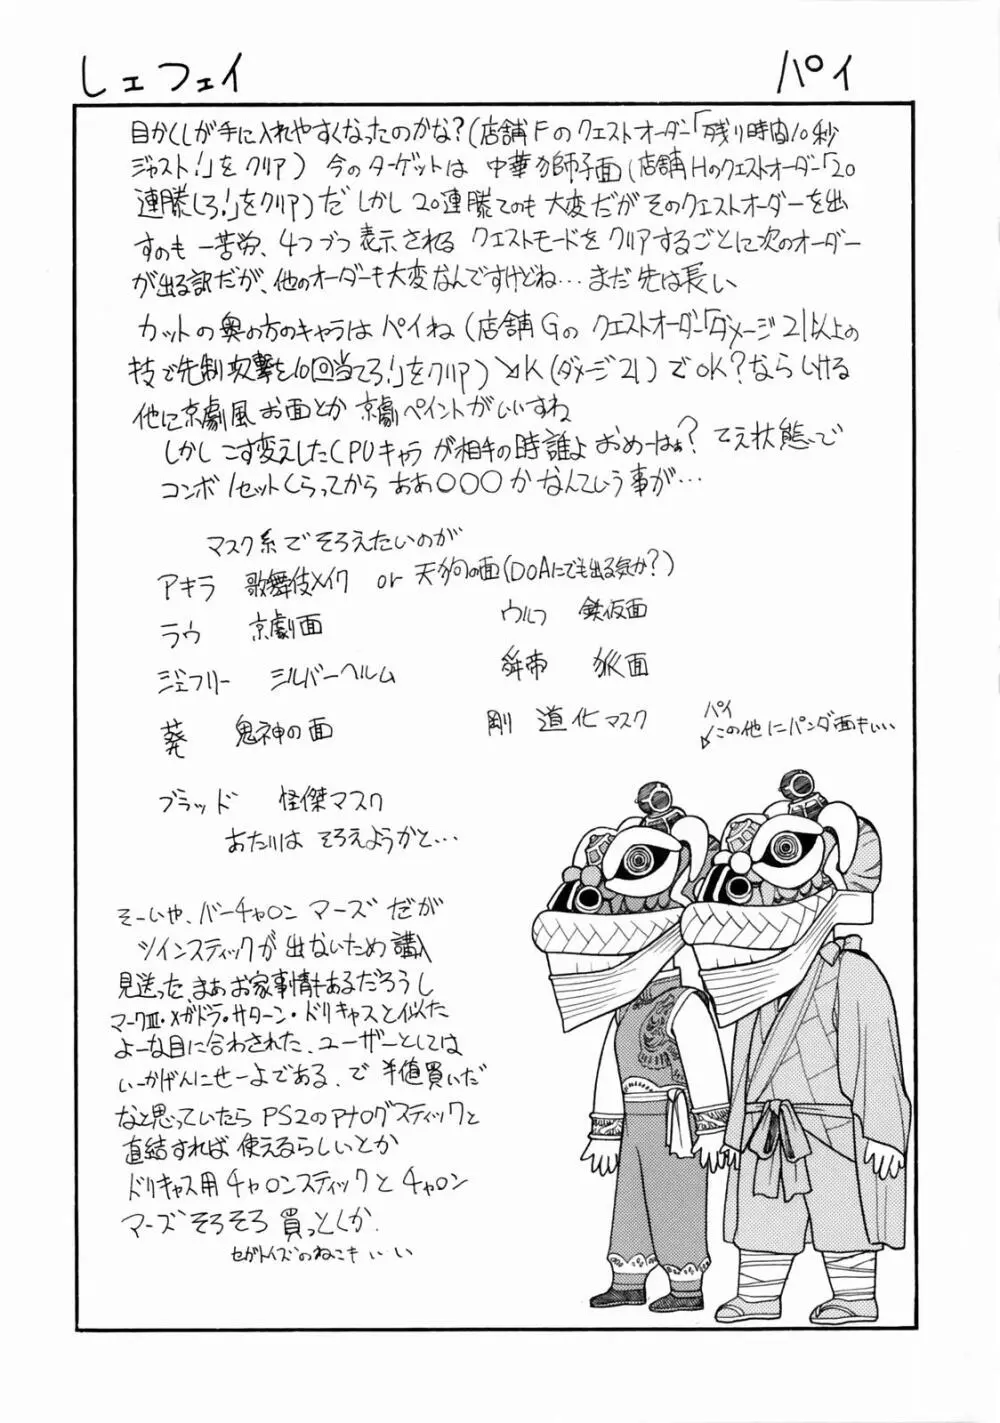 しェフェイ
パイ
目かくしが手に入れやすくなったのかな?(店舗Fのクエストオーダー「残り時間10秒
ジャスト!」をクリア) 今のターゲットは 中華獅子面(店舗Hのクエストオーダー「20
連勝しろ!」をクリア)だ しかし 20連勝てのも 大変だが そのクエストオーダーを出
すのも 一苦労、4つづつ 表示される クエストモードを クリアするごとに次のオーダー
が出る訳だが、他のオーダーも大変なんですけどね…まだ先は長い
カットの奥の方のキャラは パイね(店舗Gの クエストオーダー「ダメージ21以上の
技で先制攻撃を10回当てろ!」をクリア)↘K(ダメージ21)でOK?なら いける
他に京劇風お面とか 京劇ペイントがいいすね
しかし こす変えしたCPUキャラが相手の時 誰よ おめーはぁ? てえ状態で
コンボ1セットくらってから ああ〇〇〇か なんていう事が…
マスク系でそろえたいのが
アキラ 歌舞伎メイク or 天狗の面(DOAにでも出る気か?)
ラウ 京劇面
ウルフ 鉄仮面
ジェフリー シルバーヘルム
舜帝 狐面
葵 鬼神の面
剛 道化マスク
パイ
↙この他にパンダ面もいい…
ブラッド 怪傑マスク
あたりは そろえようかと…
そーいや、バーチャロン マーズ だが
ツインスティックが 出ないため 購入
見送った、まぁお家事情もあるだろうし
マークⅢ・メガドラ・サターン・ドリキャスと似た
よーな目に合わされた、ユーザーとしては
いーかげんにせーよである、で 半値買いだ
なと思っていたら PS2のアナログスティックと
直結すれば 使えるらしいとか
ドリキャス用 チャロンスティックと チャロン
マーズ そろそろ 買っとくか.
セガトイズのねこもいい